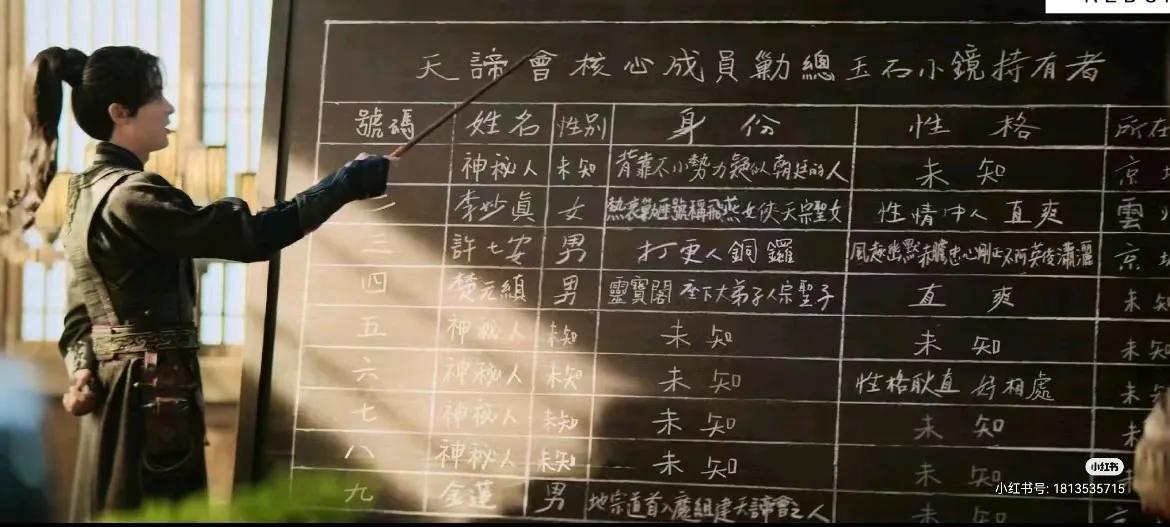 天諦會核心成員勳總玉石小鏡持有者
號碼 姓名 性別 身份 性格 所在
神秘人 未知 背靠不小勢力疑似朝廷的人 未知 京
二 李妙真 女 號稱飛燕女俠天宗聖女 性情中人 直爽 雲
三 許七安 男 打更人銅鑼 風趣幽默赤膽忠心剛正不阿英俊瀟灑 京
四 楚元縝 男 靈寶閣座下大弟子人宗聖子 直爽 未知
五 神秘人 未知 未知 未知 未知
六 神秘人 未知 未知 性格耿直 好相處 未
七 神秘人 未知 未知 未知 未
八 神秘人 未知 未知 未知
九 金蓮 男 地宗道首入魔組建天諦會之人 未知
小红书
小红书号: 1813535715